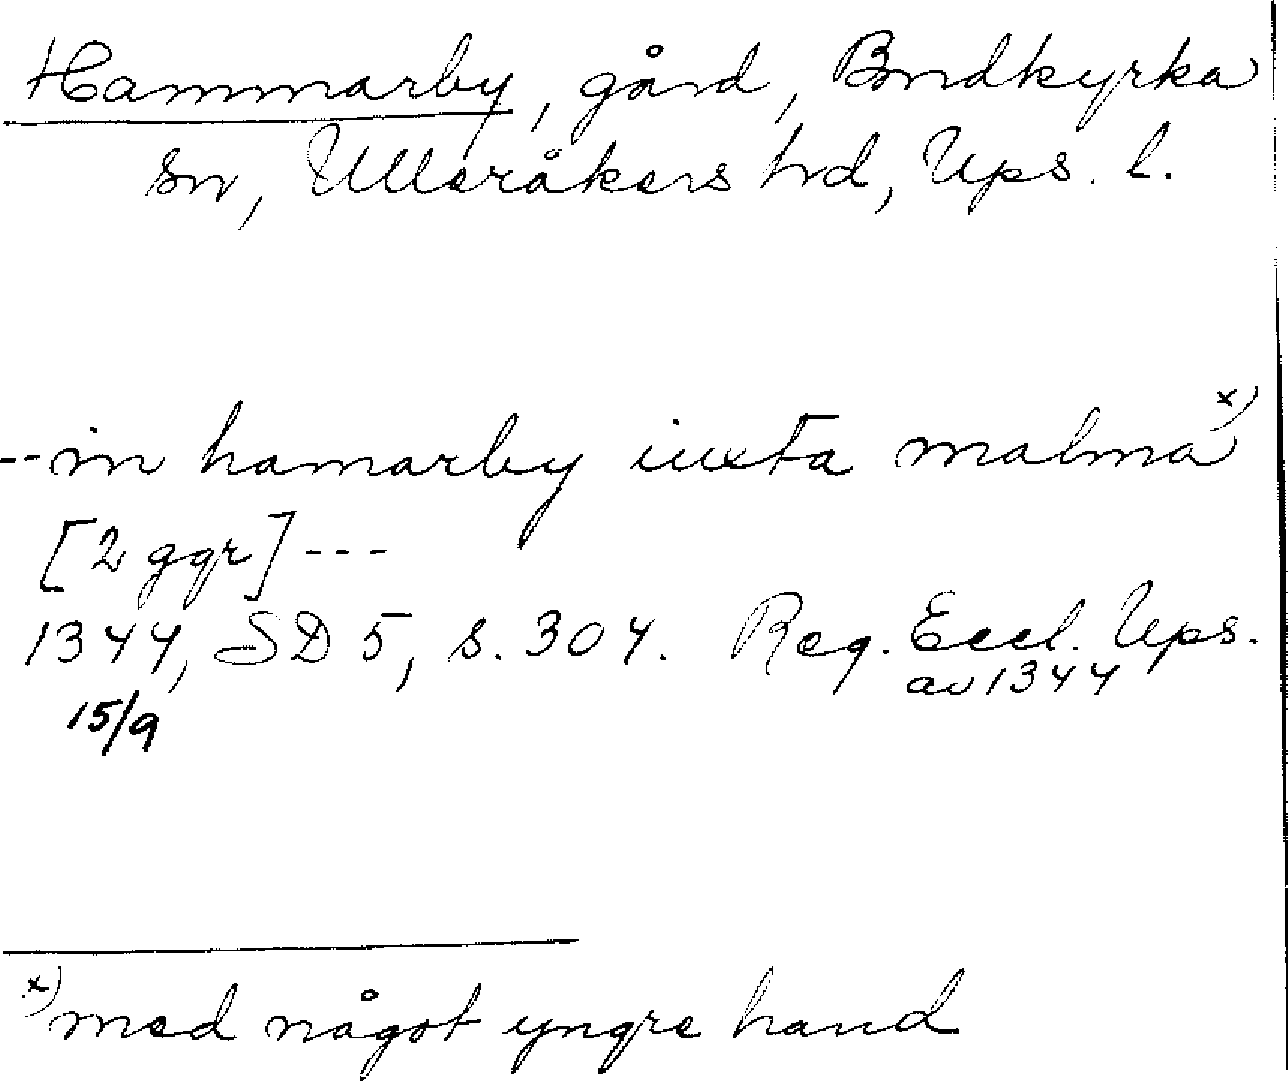 Hammarby, gård, Bondkyrka
sn, Ulleråkers hd, Ups. l.
--in hamarby iuxta malma x)
[2 ggr]---
1344, SD 5, s. 304. Reg. Eccl. Ups.
15/9 av 1344
x) med något yngre hand